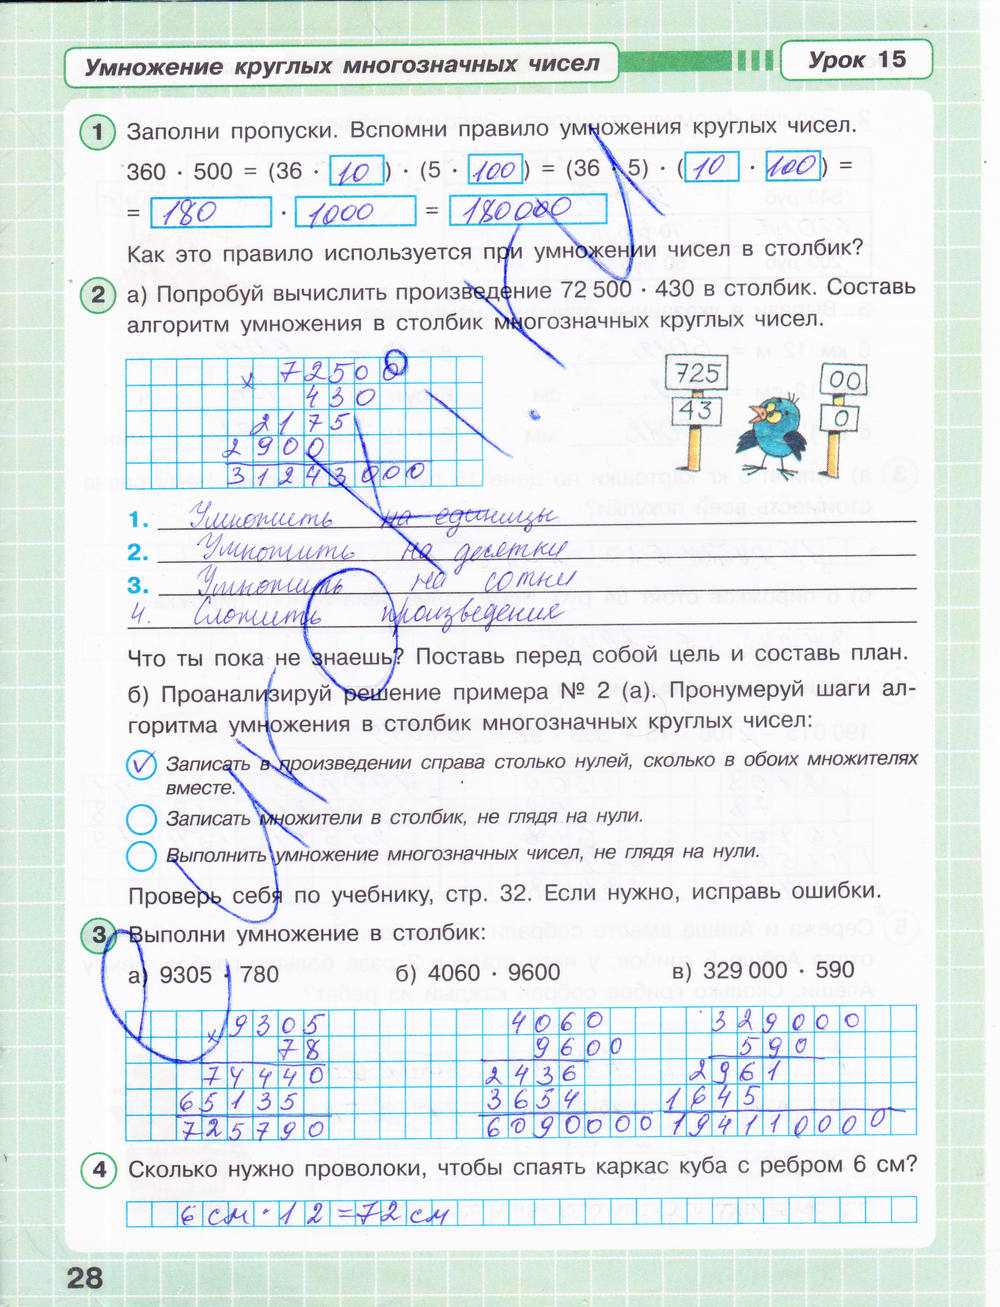 Умножение круглых многозначных чисел
Урок 15
1 Заполни пропуски. Вспомни правило умножения круглых чисел.
360 · 500 = (36 · 10) · (5 · 100) = (36 · 5) · (10 · 100) =
= 180 · 1000 = 180000
Как это правило используется при умножении чисел в столбик?
2 а) Попробуй вычислить произведение 72 500 · 430 в столбик. Составь
алгоритм умножения в столбик многозначных круглых чисел.
× 72500
430
2175
2900
31243000
725
43
00
0
1. Умножить на единицы
2. Умножить на десятки
3. Умножить на сотни
4. Сложить произведения
Что ты пока не знаешь? Поставь перед собой цель и составь план.
б) Проанализируй решение примера № 2 (а). Пронумеруй шаги ал-
горитма умножения в столбик многозначных круглых чисел:
Записать в произведении справа столько нулей, сколько в обоих множителях
вместе.
Записать множители в столбик, не глядя на нули.
Выполнить умножение многозначных чисел, не глядя на нули.
Проверь себя по учебнику, стр. 32. Если нужно, исправь ошибки.
3 Выполни умножение в столбик:
а) 9305 · 780 б) 4060 · 9600 в) 329 000 · 590
× 9305 4060 329000
78 9600 590
74440 2436 2961
65135 3654 1645
725790 6090000 194110000
4 Сколько нужно проволоки, чтобы спаять каркас куба с ребром 6 см?
6 см · 12 = 72 см
28